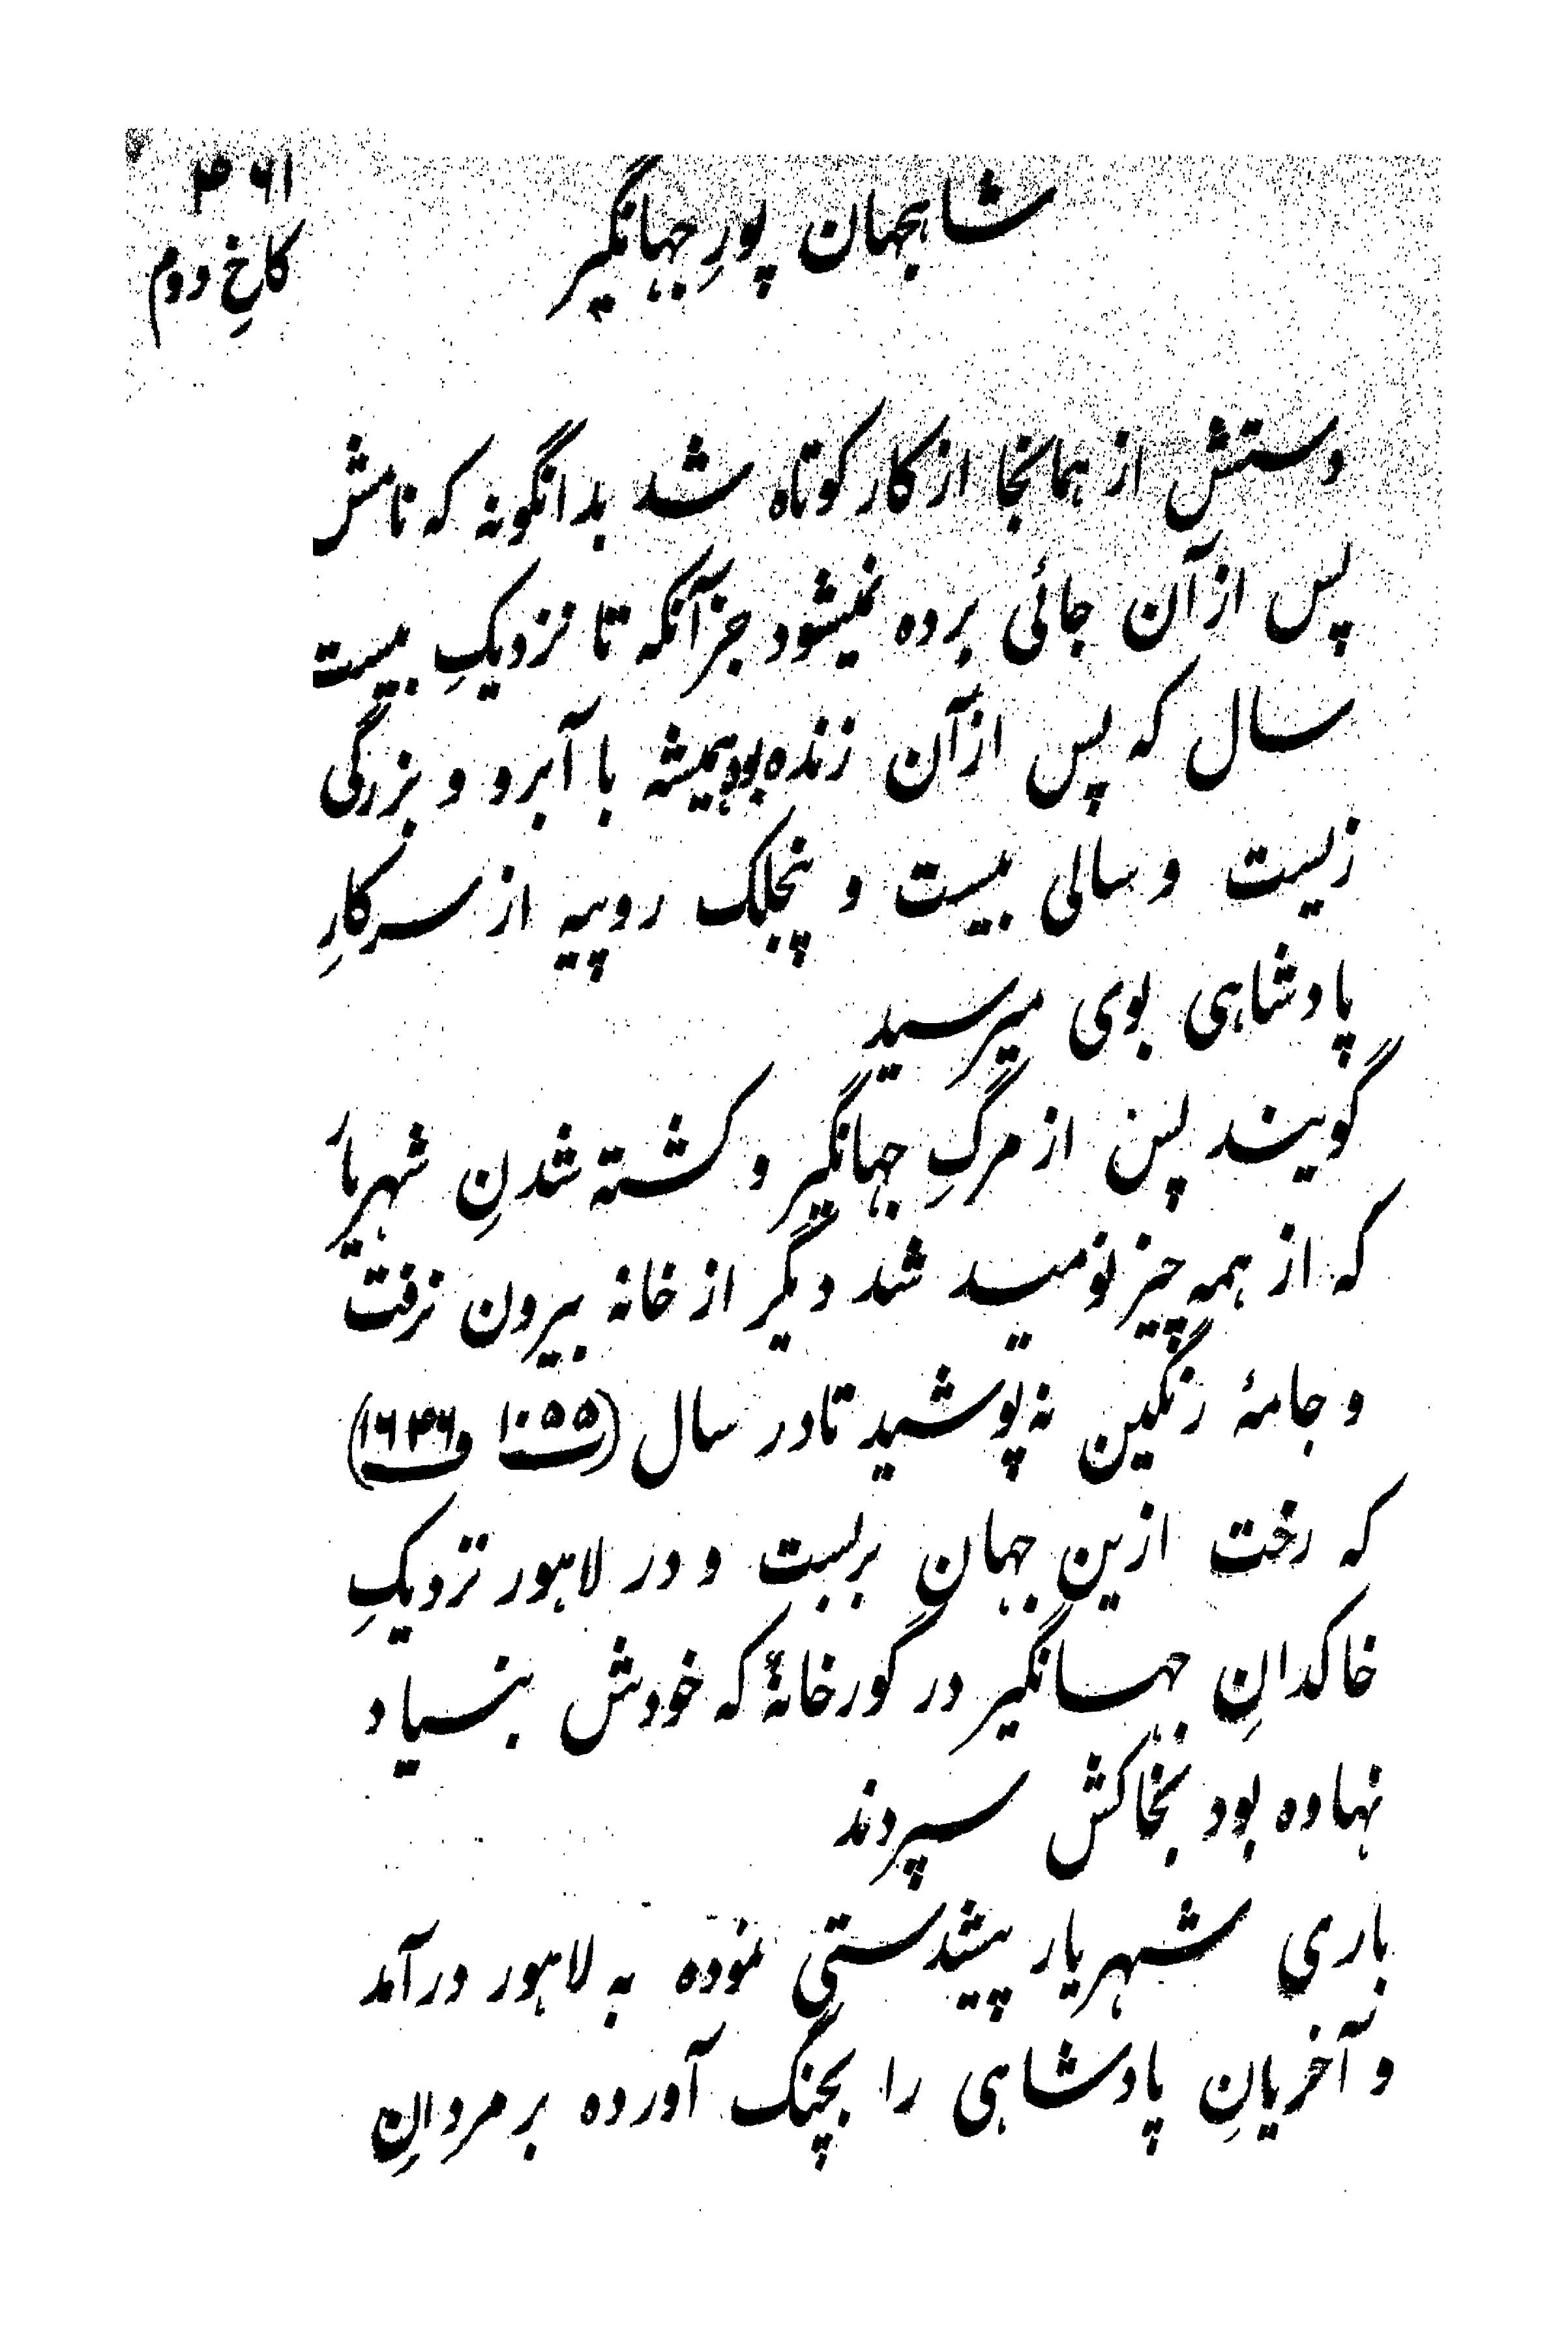 ۴۶۱
شاهجهان پورِ جهانگیر
کاخِ دوم
دستش از همانجا از کار کوتاه شد بدانگونه که نامش
پس از آن جائی برده نمیشود جز آنکه تا نزدیکِ بیست
سال که پس از آن زنده بود همیشه با آبرو و بزرگی
زیست و سالی بیست و پنجلک روپیه از سرکارِ
پادشاهی بوی میرسید
گویند پس از مرگِ جهانگیر و کشته شدنِ شهریار
که از همه چیز نومید شد دیگر از خانه بیرون نرفت
و جامۀ رنگین نه پوشید تا در سال (۱۰۵۵ ت ۱۶۴۶ ف)
که رخت ازین جهان بربست و در لاهور نزدیکِ
خاکدانِ جهانگیر در گورخانۀ که خودش بنیاد
نهاده بود بخاکش سپردند
باری شهریار پیشدستی نموده به لاهور درآمد
و آخریانِ پادشاهی را بچنگ آورده بر مردانِ